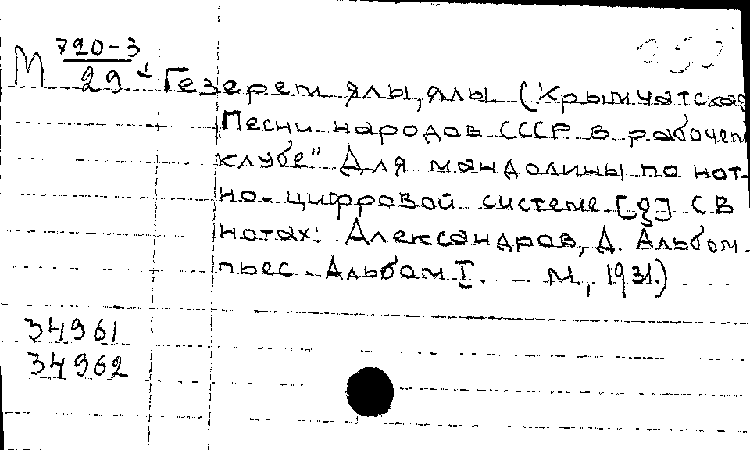 М 720-3
29
Гезерем ялы, ялы (Крымчатская
Песни народов СССР в рабочем
клубе" Для мандолины по нот-
но-цифровой системе [д] С В
нотах: Александров, А. Альбом
пьес. Альбом I. М, 1931.)
34961
34962